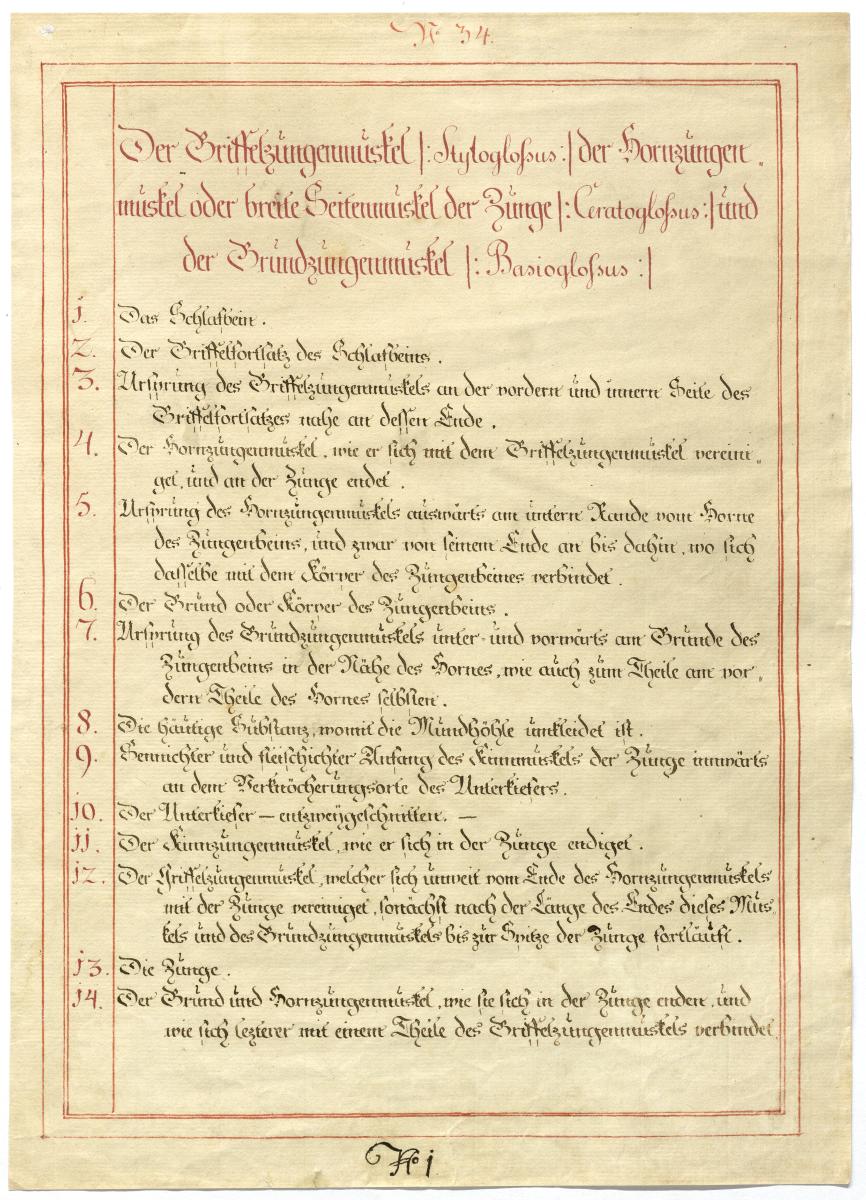 No 34.
Der Griffelzungenmuskel |: Styloglossus :| der Hornzungen„
muskel oder breite Seitenmuskel der Zunge |: Ceratoglossus :| und
der Grundzungenmuskel |: Basioglossus :|
1. Das Schlafbein.
2. Der Griffelfortsatz des Schlafbeins.
3. Ursprung des Griffelzungenmuskels an der vordern und innern Seite des
Griffelfortsatzes nahe an dessen Ende.
4. Der Hornzungenmuskel, wie er sich mit dem Griffelzungenmuskel vereini„
get, und an der Zunge endet.
5. Ursprung des Hornzungenmuskels auswärts am untern Rande vom Horne
des Zungenbeins, und zwar von seinem Ende an bis dahin, wo sich
dasselbe mit dem Körper des Zungenbeines verbindet.
6. Der Grund oder Körper des Zungenbeins.
7. Ursprung des Grundzungenmuskels unter- und vorwärts am Grunde des
Zungenbeins in der Nähe des Hornes, wie auch zum Theile am vor„
dern Theile des Hornes selbsten.
8. Die häutige Substanz, womit die Mundhöhle umkleidet ist.
9. Sennichter und fleischichter Anfang des Kinnmuskels der Zunge innwärts
an dem Verknöcherungsorte des Unterkiefers.
10. Der Unterkiefer — entzweygeschnitten. —
11. Der Kinnzungenmuskel, wie er sich in der Zunge endiget.
12. Der Griffelzungenmuskel, welcher sich unweit vom Ende des Hornzungenmuskels
mit der Zunge vereiniget, sonächst nach der Länge des Endes dieses Mus„
kels und des Grundzungenmuskels bis zur Spitze der Zunge fortläuft.
13. Die Zunge.
14. Der Grund und Hornzungenmuskel, wie sie sich in der Zunge enden, und
wie sich lezterer mit einem Theile des Griffelzungenmuskels verbindet.
No 1